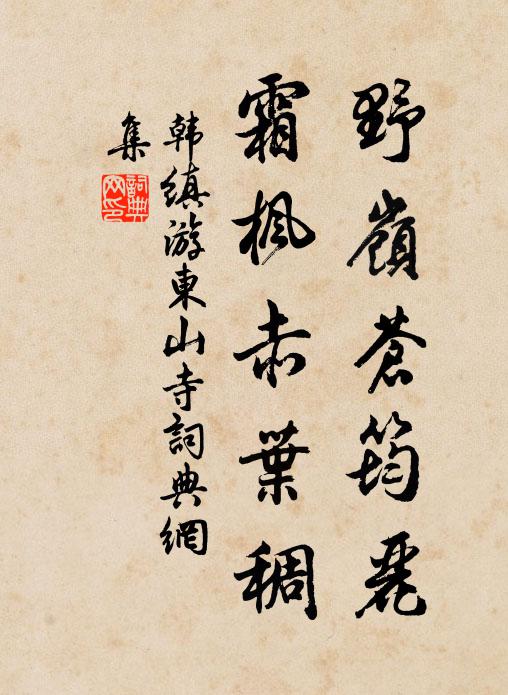 野嶺蒼筠麗
霜楓赤葉稠
韩縝游東山寺詞典網
集
詞典网印